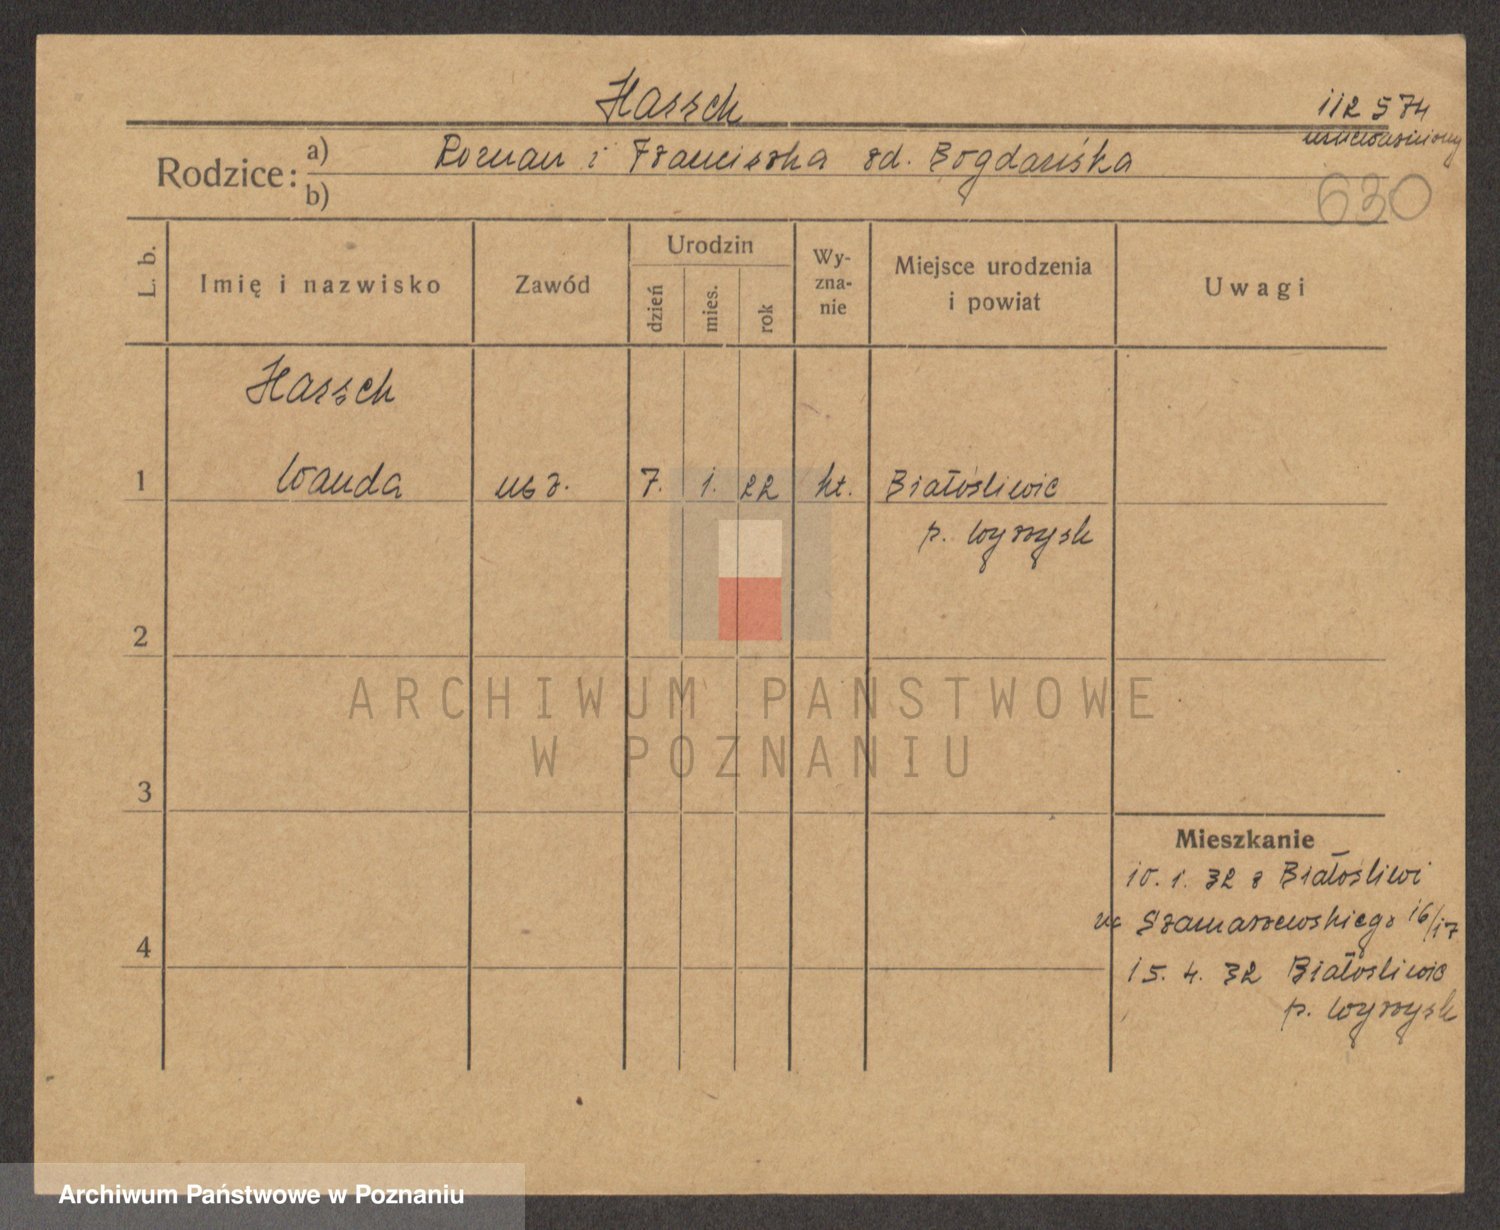 Hassch
112574
unieważniony
Rodzice:
a) Roman i Franciszka zd. Bogdańska
b)
630
L. b.
Imię i nazwisko
Zawód
Urodzin
dzień
mies.
rok
Wy-
zna-
nie
Miejsce urodzenia
i powiat
Uwagi
Hassch
1 Wanda ucz. 7. 1. 22 kt. Białośliwie
p. Wyrzysk
2
3
4
ARCHIWUM PAŃSTWOWE
W POZNANIU
Mieszkanie
10. 1. 32 z Białośliwi
Szamarzewskiego 16/17
15. 4. 32 Białośliwie
p. Wyrzysk
Archiwum Państwowe w Poznaniu